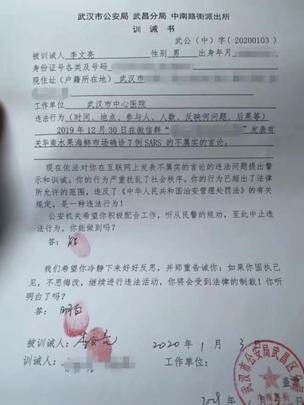 武汉市公安局 武昌分局 中南路街派出所
训 诫 书
武公（中）字（20200103）
被训诫人 李文亮 性别 男 出生年月
身份证号各类及号码
现住址（户籍所在地） 武汉市
工作单位 武汉市中心医院
违法行为（时间、地点、参与人、人数、反映何问题、后果等）
2019年12月30日在微信群“ ”发表有
关华南水果海鲜市场确诊7例SARS的不属实的言论
现在依法对你在互联网上发表不属实的言论的违法问题提出警
示和训诫。你的行为严重扰乱了社会秩序。你的行为已超出了法律
所允许的范围，违反了《中华人民共和国治安管理处罚法》的有关
规定，是一种违法行为！
公安机关希望你积极配合工作，听从民警的规劝，至此中止违
法行为。你能做到吗？
答：能
我们希望你冷静下来好好反思，并郑重告诫你：如果你固执己
见，不思悔改，继续进行违法活动，你将会受到法律的制裁！你听
明白了吗？
答：明白
被训诫人：李文亮 2020年1月3日
训诫人： 工作单位：
武汉市公安局武昌区